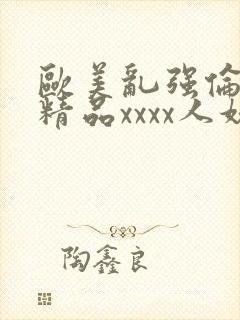 歐美亂強倫
精品xxxx人妖
陶鑫良